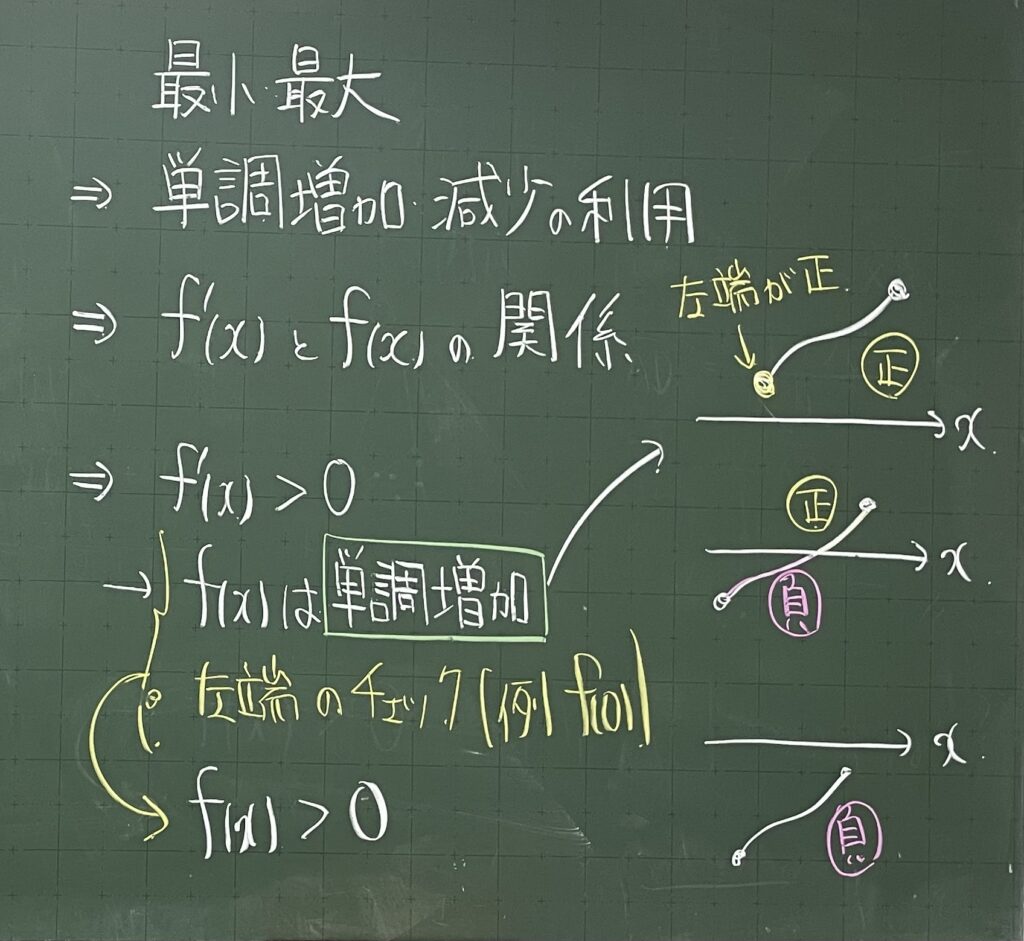 最小・最大
⇒ 単調増加・減少の利用
⇒ f'(x)とf(x)の関係
左端が正
正
x
⇒ f'(x) > 0
正
x
負
→ f(x)は単調増加
左端のチェック(例 f(0))
x
f(x) > 0
負